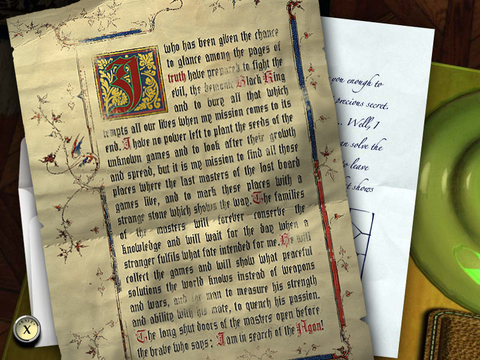 I who has been given the chance
to glance among the pages of
truth have prepared to fight the
evil, the demonic Black King
and to bury all that which
tempts all our lives when my mission comes to its
end. I have no power left to plant the seeds of the
unknown games and to look after their growth
and spread, but it is my mission to find all those
places where the last masters of the lost board
games live, and to mark these places with a
strange stone which shows the way. The families
of the masters will forever conserve the
knowledge and will wait for the day when a
stranger fulfils what fate intended for me. He will
collect the games and will show what peaceful
solutions the world knows instead of weapons
and wars, and the man to measure his strength
and ability with his mate, to quench his passion.
The long shut doors of the masters open before
the brave who says: I am in search of the Agon!
you enough to
precious secret.
... Well, I
can solve the
to leave
t shows
X